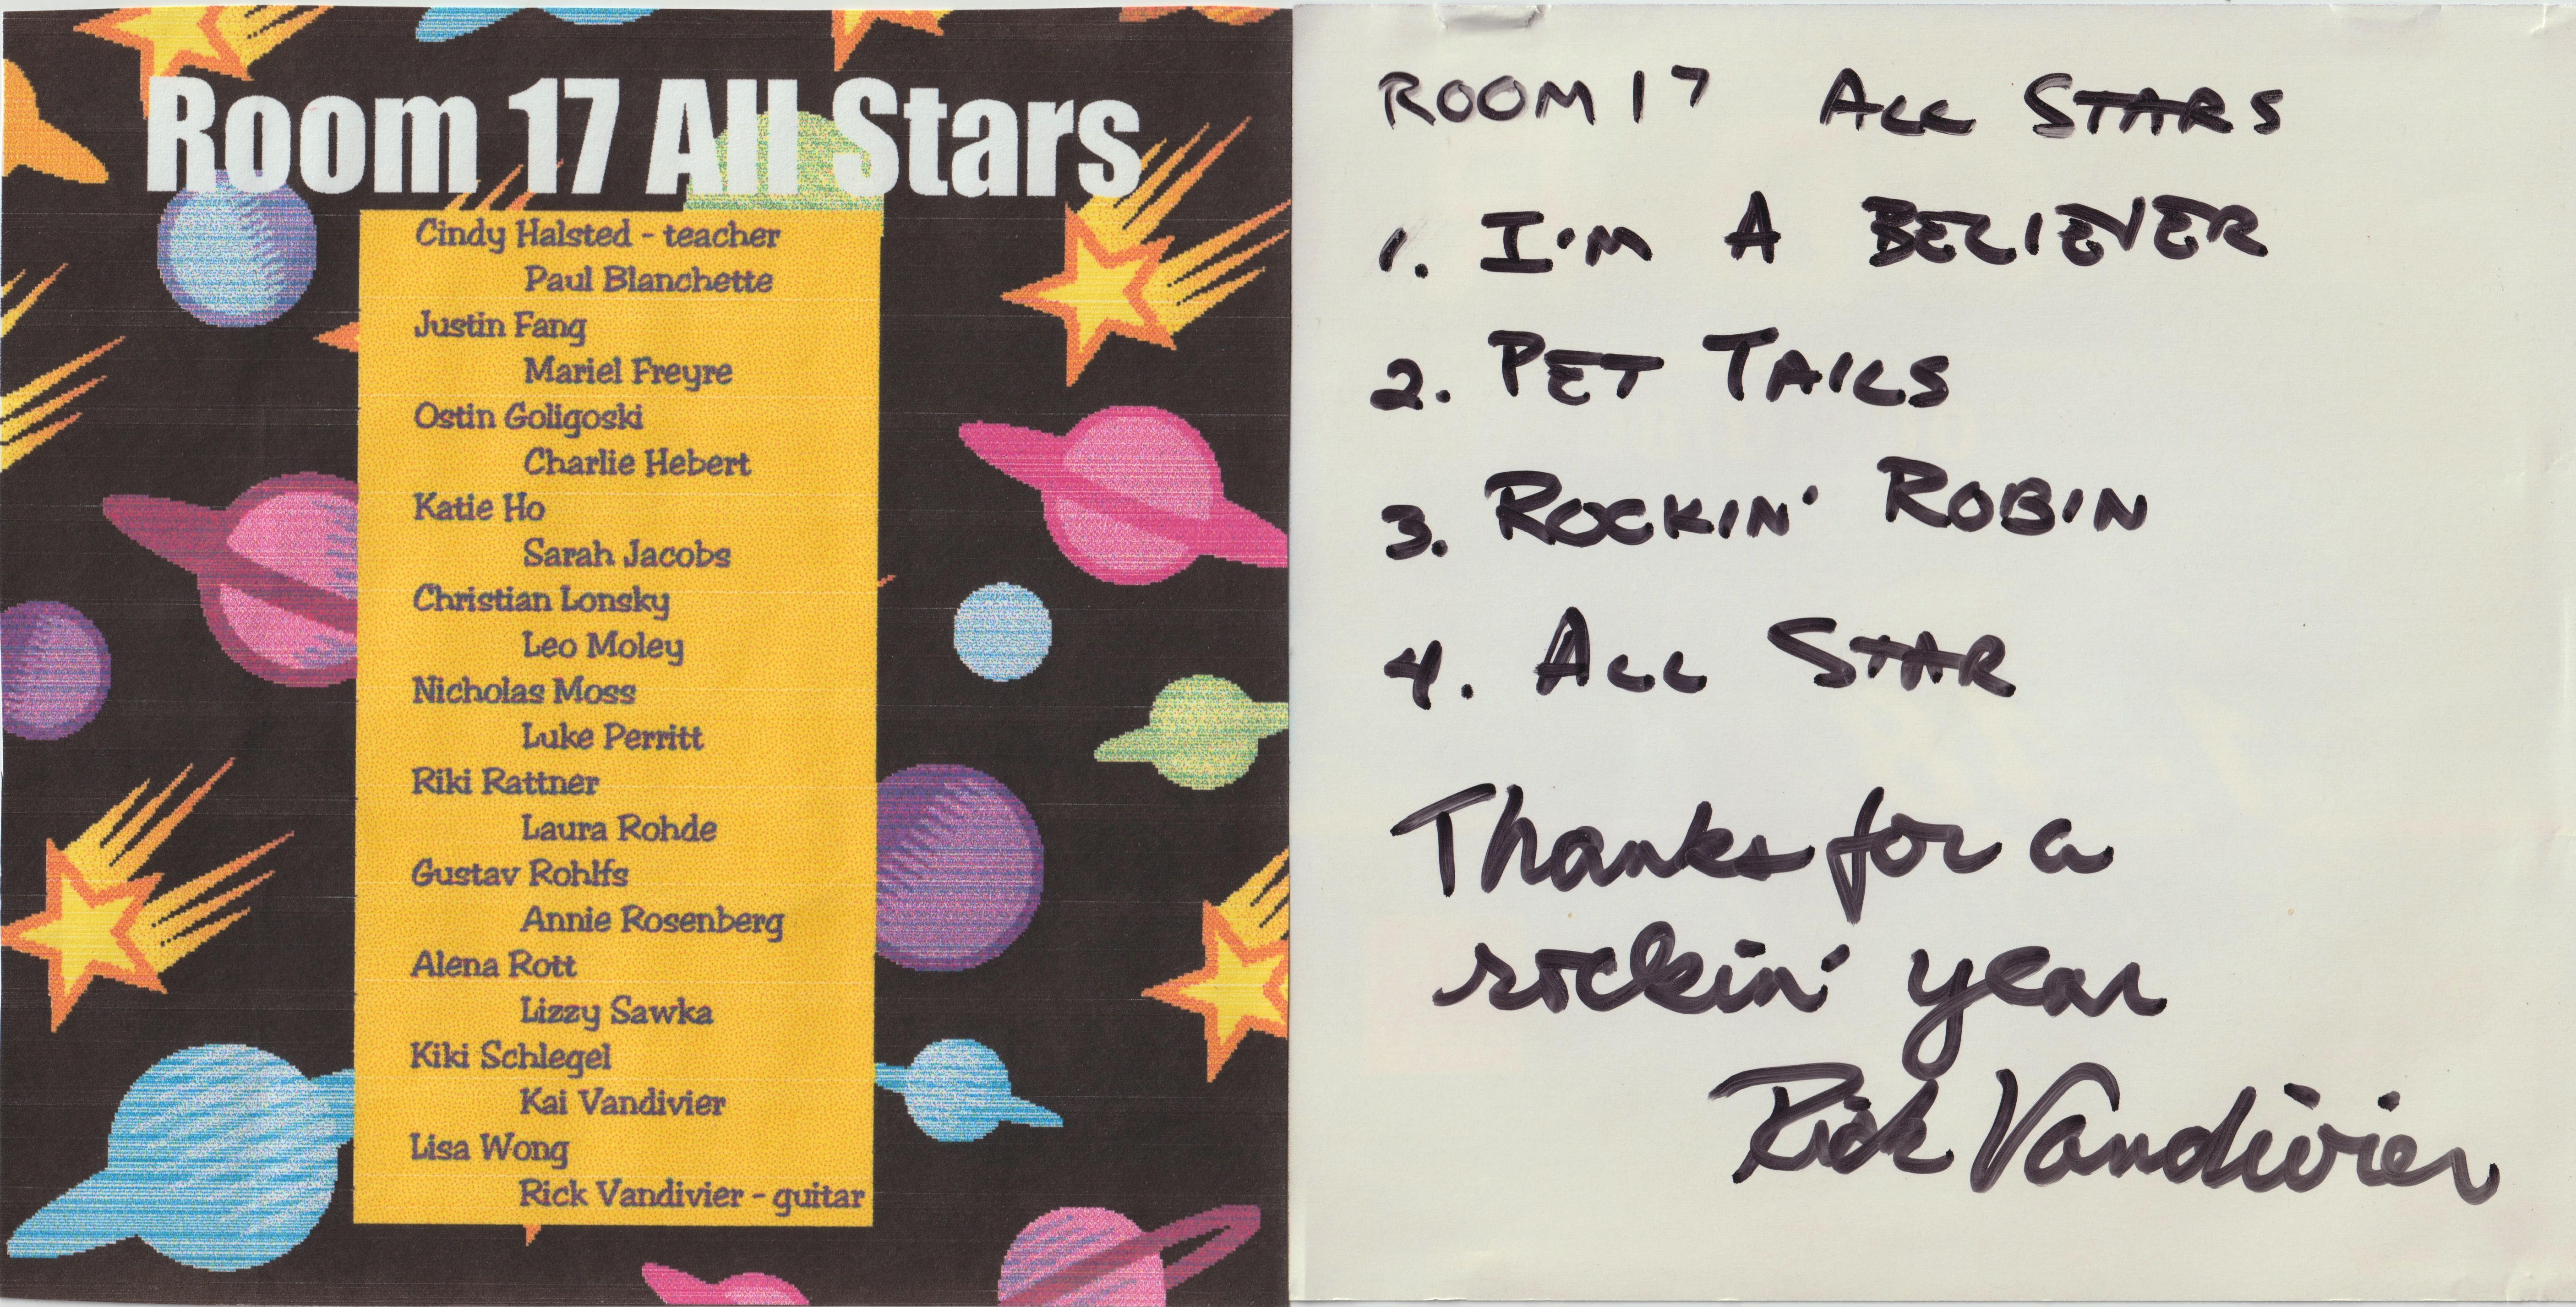 Room 17 All Stars
Cindy Halsted - teacher
Paul Blanchette
Justin Fang
Mariel Freyre
Ostin Goligoski
Charlie Hebert
Katie Ho
Sarah Jacobs
Christian Lonsky
Leo Moley
Nicholas Moss
Luke Perritt
Riki Rattner
Laura Rohde
Gustav Rohlfs
Annie Rosenberg
Alena Rott
Lizzy Sawka
Kiki Schlegel
Kai Vandivier
Lisa Wong
Rick Vandivier - guitar
ROOM 17 ALL STARS
1. I'M A BELIEVER
2. PET TAILS
3. ROCKIN' ROBIN
4. ALL STAR
Thanks for a
rockin' year
Rick Vandivier